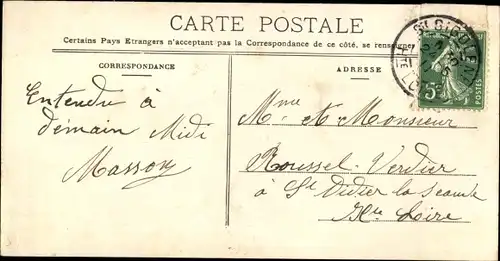 CARTE POSTALE
Certains Pays Etrangers n'acceptent pas la Correspondance de ce côté, se renseigner
CORRESPONDANCE
ADRESSE
Entendu à
démain Midi
Masson
Mme et Monsieur
Roussel-Verdier
à St Didier la Seauve
Hte Loire
5c
POSTES